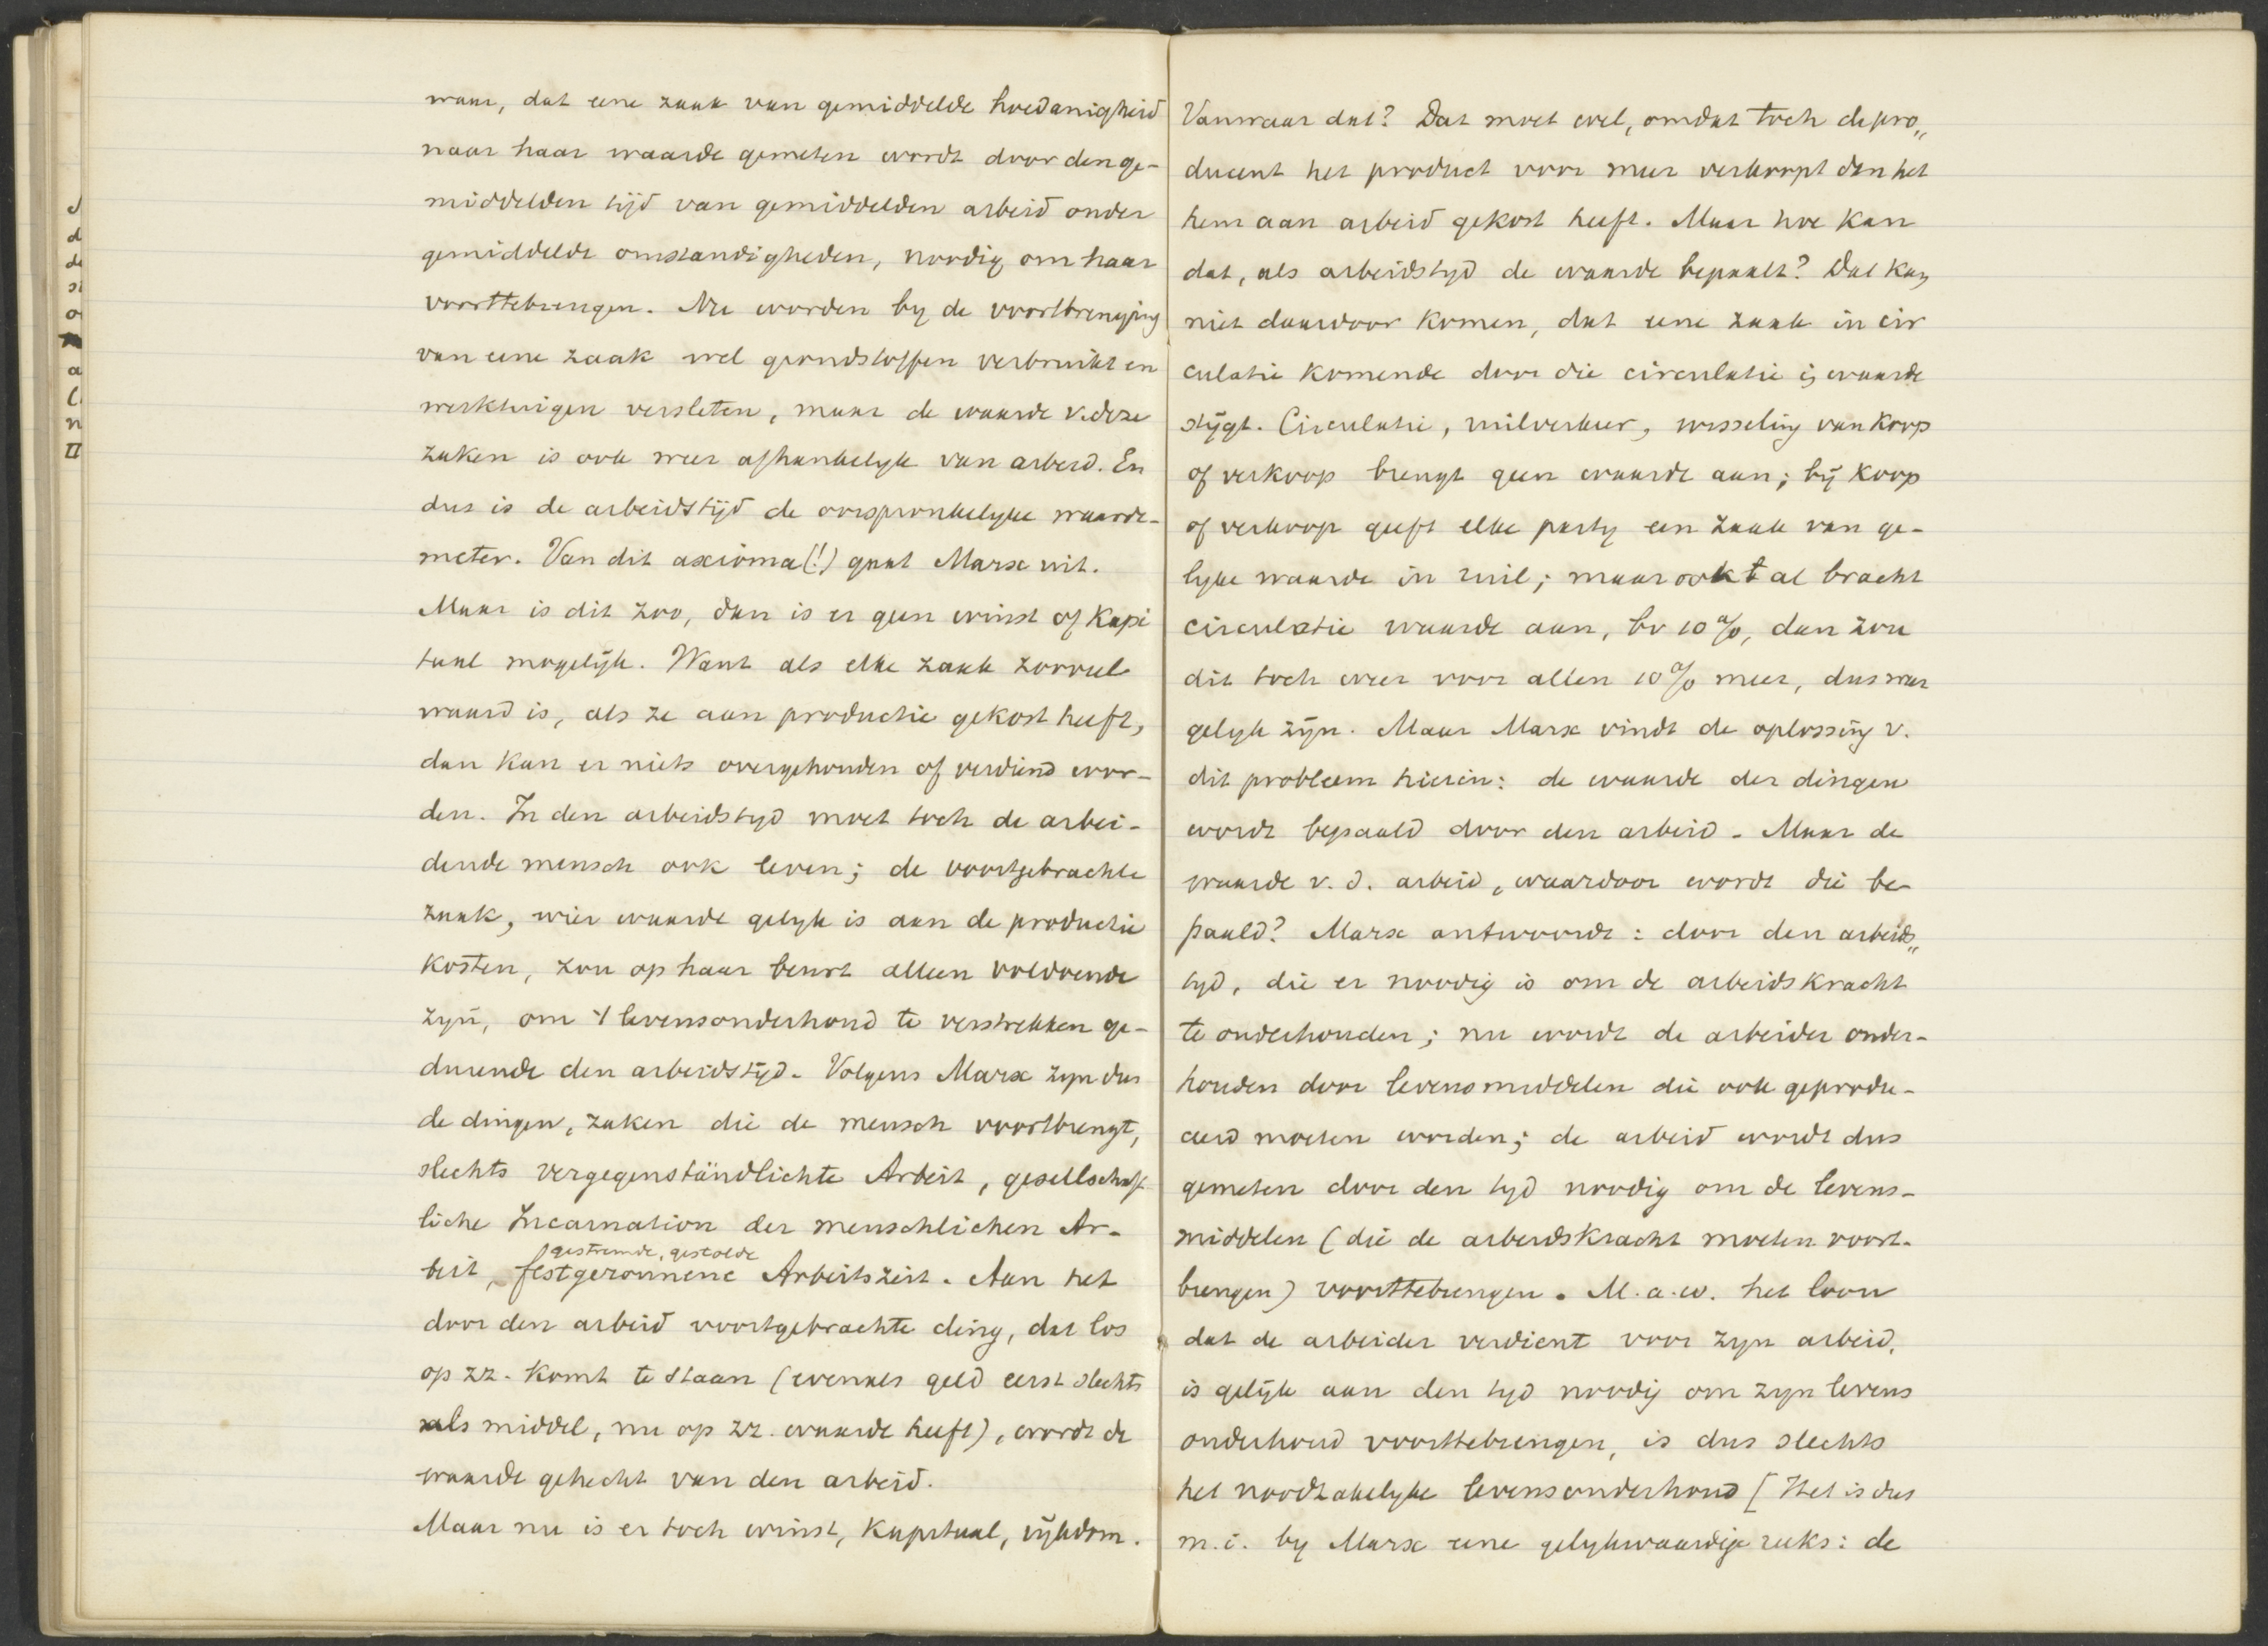 waar, dat eene zaak van gemiddelde hoedanigheid
naar haar waarde gemeten wordt door den ge-
middelden tijd van gemiddelden arbeid onder
gemiddelde omstandigheden, noodig om haar
voorttebrengen. Nu worden by de voortbrenging
van eene zaak wel grondstoffen verbruikt en
werktuigen versleten, maar de waarde v. deze
zaken is ook weer afhankelyk van arbeid. En
dus is de arbeidstijd de oorspronkelyke waarde-
meter. Van dit axioma (!) gaat Marx uit.
Maar is dit zoo, dan is er geen winst of Kapi
taal mogelijk. Want als elke zaak zooveel
waard is, als ze aan productie gekost heeft,
dan kan er niets overgehouden of verdiend wor-
den. In den arbeidstyd moet toch de arbei-
dende mensch ook leven; de voortgebrachte
zaak, wier waarde gelyk is aan de productie
kosten, zou op haar beurt alleen voldoende
zyn, om 't levensonderhoud te verstrekken ge-
durende den arbeidstijd. Volgens Marx zyn dus
de dingen, zaken die de mensch voortbrengt,
slechts vergegenständlichte Arbeit, gesellschaft
liche Incarnation der menschlichen Ar-
gestremde, gestolde
beit, festgeronnene Arbeitszeit. Aan het
door den arbeid voortgebrachte ding, dat los
op zz. komt te staan (evenals geld eerst slechts
als middel, nu op zz. waarde heeft), wordt de
waarde gehecht van den arbeid.
Maar nu is er toch winst, kapitaal, rijkdom.
Vanwaar dat? Dat moet wel, omdat toch de pro„
ducent het product voor meer verkoopt dan het
hem aan arbeid gekost heeft. Maar hoe kan
dat, als arbeidstyd de waarde bepaalt? Dat kan
niet daardoor komen, dat eene zaak in cir
culatie komende door die circulatie in waarde
stijgt. Circulatie, ruilverkeer, wisseling van koop
of verkoop brengt geen waarde aan; bij koop
of verkoop geeft elke party een zaak van ge-
lyke waarde in ruil; maar ook t al bracht
circulatie waarde aan, bv 10 %, dan zou
dit toch weer voor allen 10 % meer, dus weer
gelyk zijn. Maar Marx vindt de oplossing v.
dit probleem hierin: de waarde der dingen
wordt bepaald door den arbeid. Maar de
waarde v. d. arbeid, waardoor wordt die be-
paald? Marx antwoordt: door den arbeids„
tyd, die er noodig is om de arbeidskracht
te onderhouden; nu wordt de arbeider onder-
houden door levensmiddelen die ook geprodu-
ceerd moeten worden; de arbeid wordt dus
gemeten door den tyd noodig om de levens-
middelen (die de arbeidskracht moeten voort-
brengen) voorttebrengen. M.a.w. het loon
dat de arbeider verdient voor zyn arbeid,
is gelijk aan den tyd noodig om zyn levens
onderhoud voorttebrengen, is dus slechts
het noodzakelyke levensonderhoud [Het is dus
m.i. by Marx eene gelykwaardige reeks: de